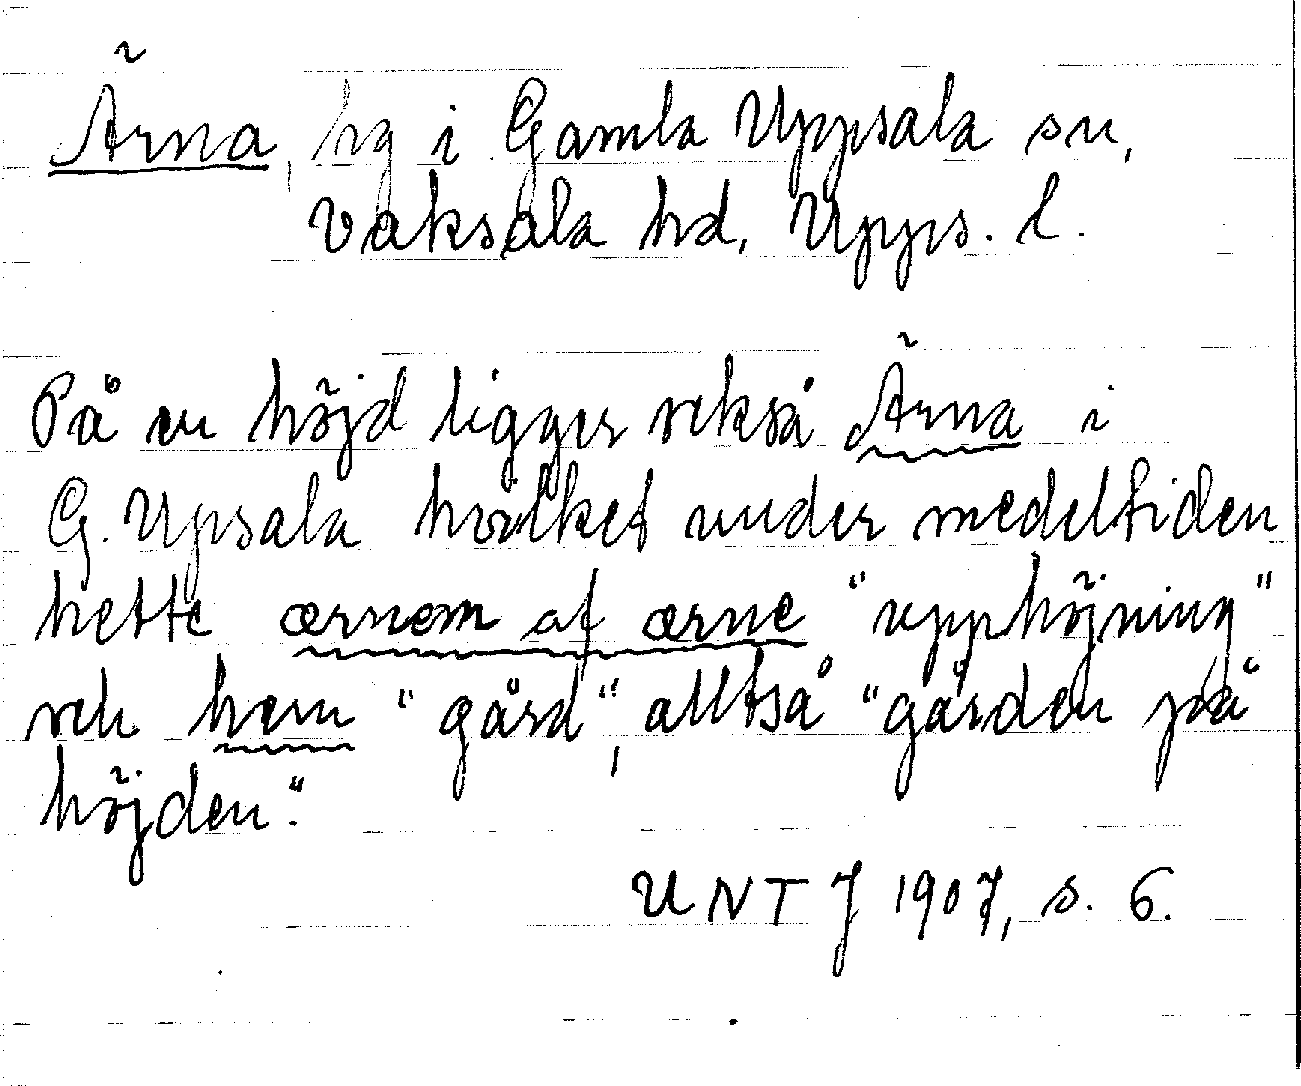 Ärna, hg i Gamla Uppsala sn,
Vaksala hd, Upps. l.
På en höjd ligger också Ärna i
G. Upsala hvilket under medeltiden
hette ærnem af ærne "upphöjning"
och hem "gård", alltså "gården på
höjden".
UNT J 1907, s. 6.